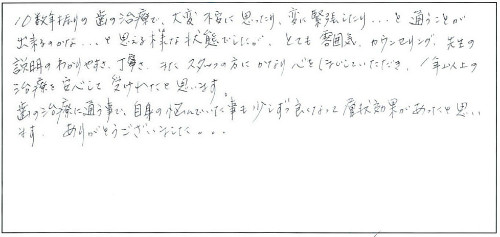 10数年振りの歯の治療で、大変不安に思ったり、変に緊張したり...と通うことが
出来るのかな...と思える様な状態でしたが、とても雰囲気、カウンセリング、先生の
説明のわかりやすさ、丁寧さ、またスタッフの方にかなり心をほぐしていただき、1年以上の
治療を安心して受けれたと思います。
歯の治療に通う事で、自身の悩んでいた事も少しずつ良くなって層状効果があったと思い
ます。ありがとうございました...